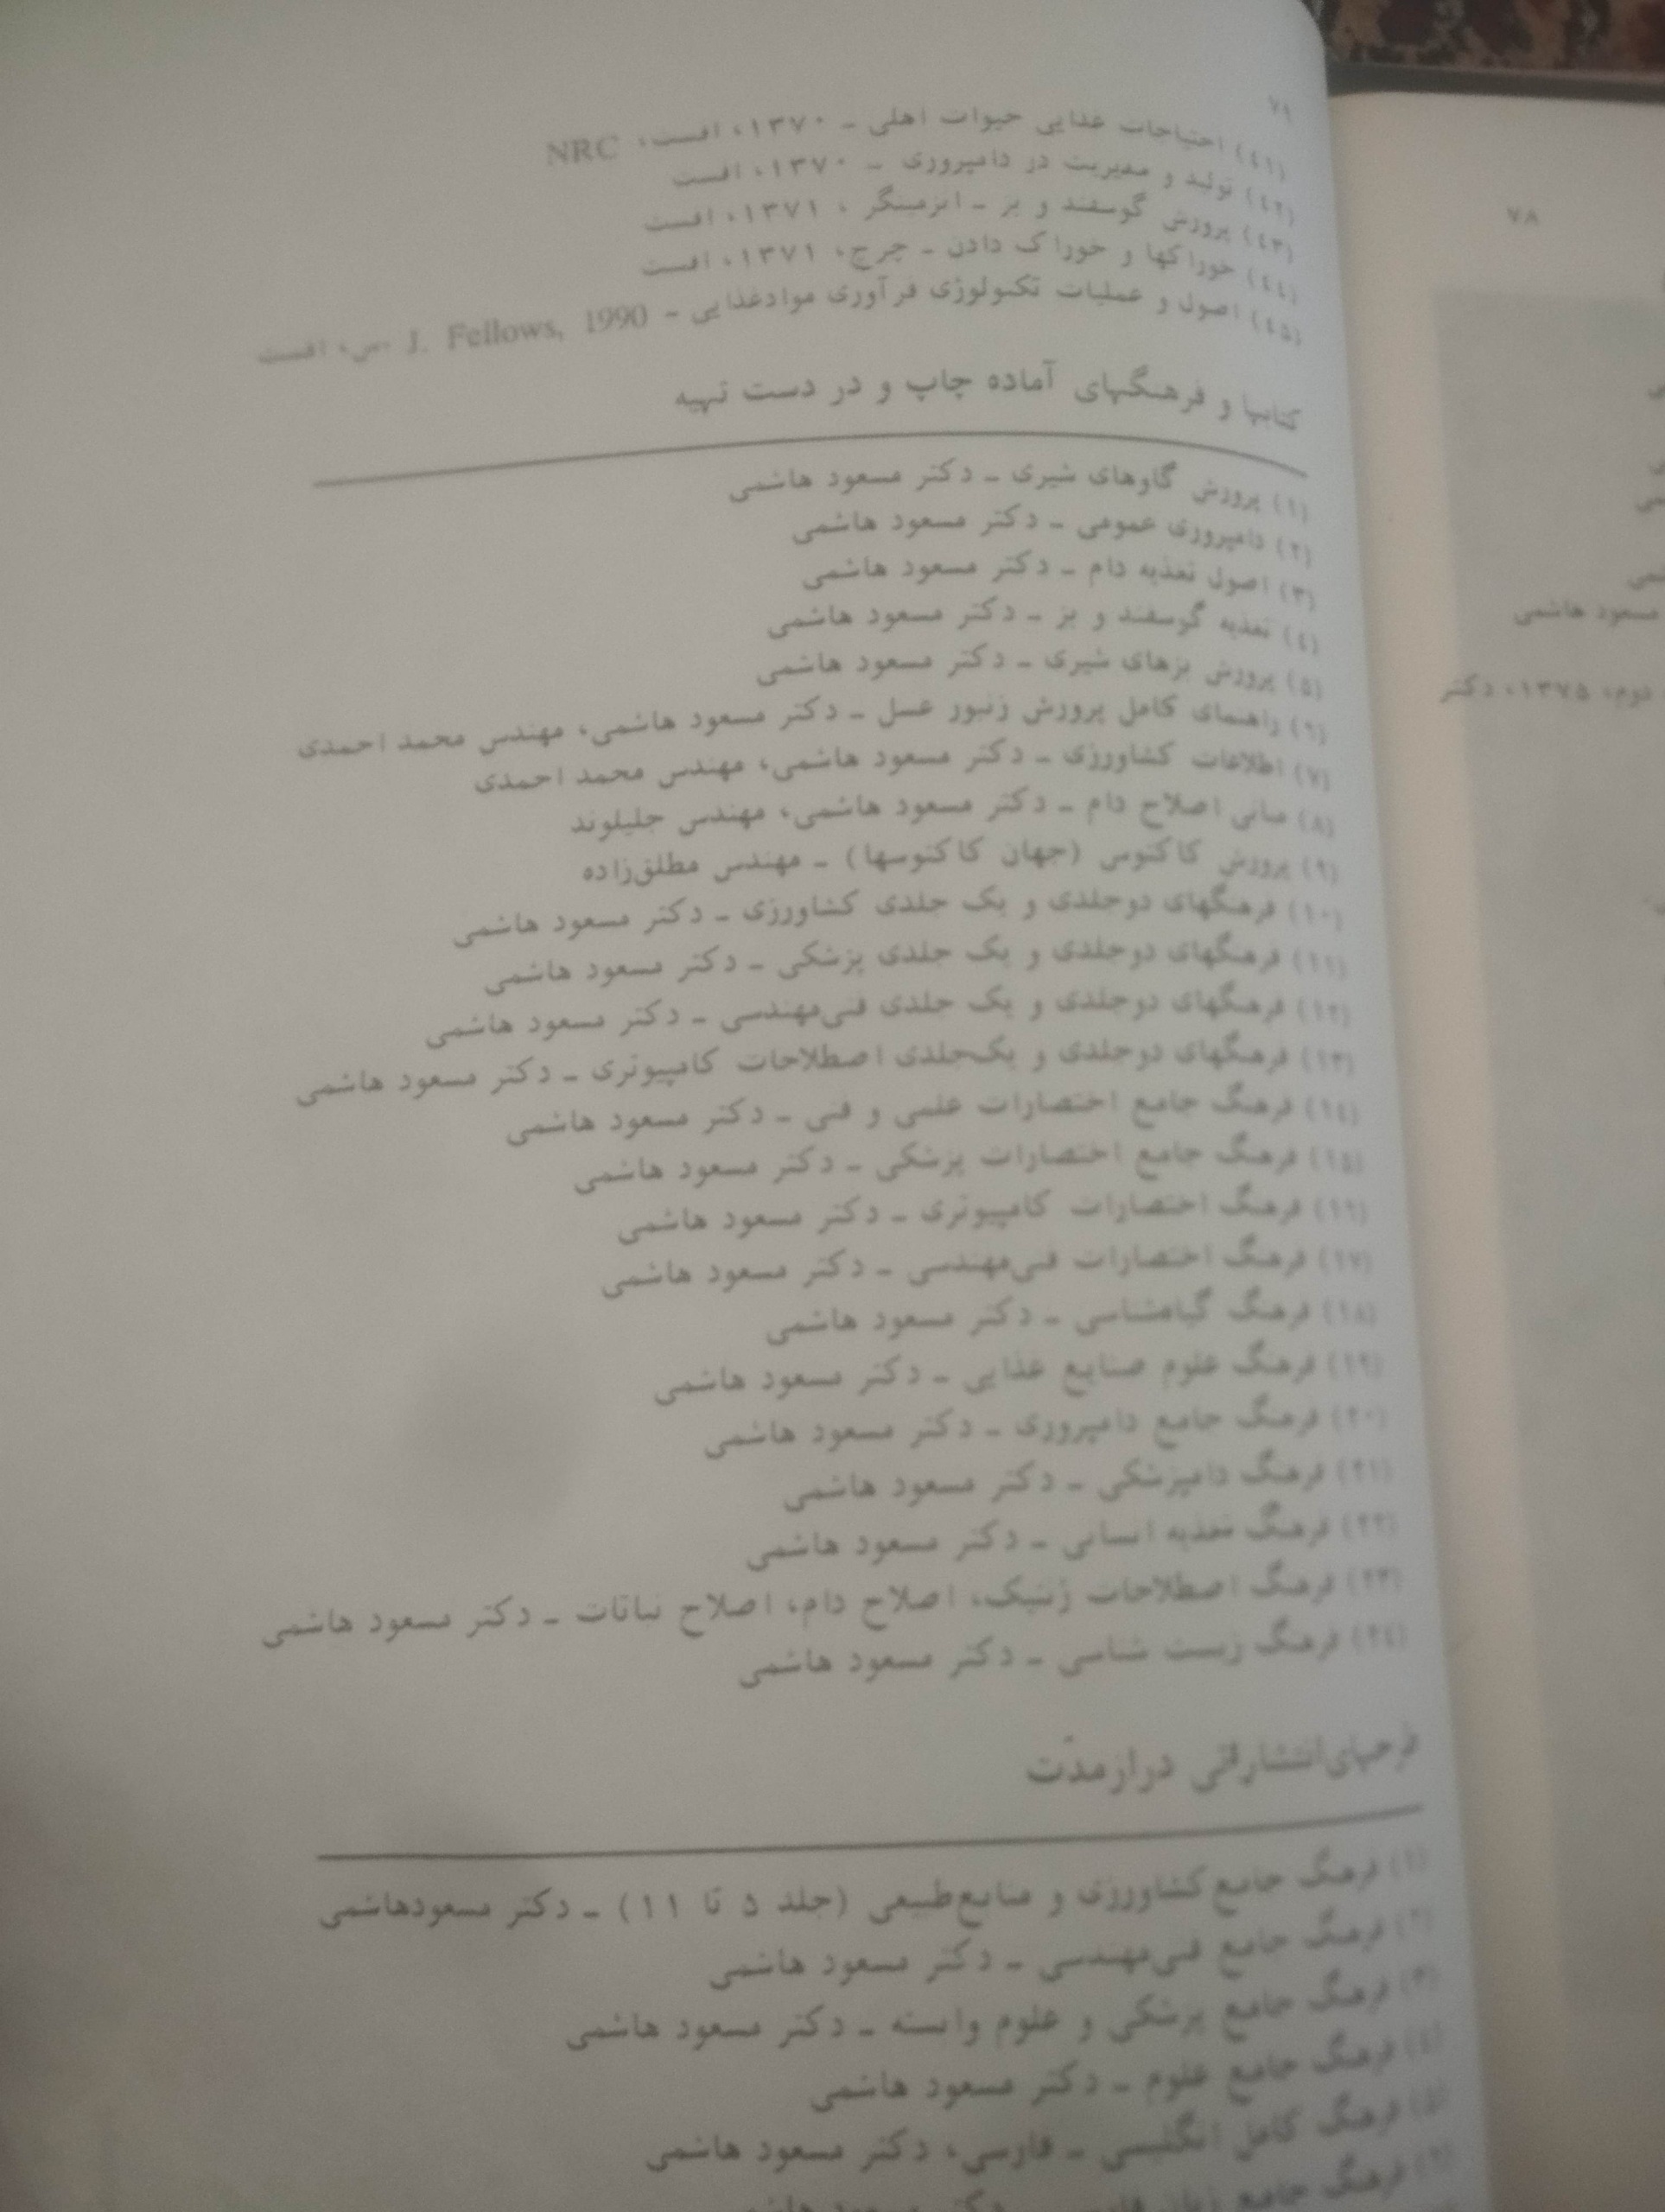 ۷۹
(٤۱) احتیاجات غذایی حیوات اهلی ـ ۱۳۷۰، افست، NRC
(٤۲) تولید و مدیریت در دامپروری ـ ۱۳۷۰، افست
(٤۳) پرورش گوسفند و بز ـ انزمینگر ، ۱۳۷۱، افست
(٤٤) خوراکها و خوراک دادن ـ چرچ، ۱۳۷۱، افست
(٤۵) اصول و عملیات تکنولوژی فرآوری موادغذایی - J. Fellows, 1990 افست
کتابها و فرهنگهای آماده چاپ و در دست تهیه
(۱) پرورش گاوهای شیری ـ دکتر مسعود هاشمی
(۲) دامپروری عمومی ـ دکتر مسعود هاشمی
(۳) اصول تغذیه دام ـ دکتر مسعود هاشمی
(٤) تغذیه گوسفند و بز ـ دکتر مسعود هاشمی
(۵) پرورش بزهای شیری ـ دکتر مسعود هاشمی
(٦) راهنمای کامل پرورش زنبور عسل ـ دکتر مسعود هاشمی، مهندس محمد احمدی
(۷) اطلاعات کشاورزی ـ دکتر مسعود هاشمی، مهندس محمد احمدی
(۸) مبانی اصلاح دام ـ دکتر مسعود هاشمی، مهندس جلیلوند
(۹) پرورش کاکتوس (جهان کاکتوسها) ـ مهندس مطلق‌زاده
(۱۰) فرهنگهای دوجلدی و یک جلدی کشاورزی ـ دکتر مسعود هاشمی
(۱۱) فرهنگهای دوجلدی و یک جلدی پزشکی ـ دکتر مسعود هاشمی
(۱۲) فرهنگهای دوجلدی و یک جلدی فنی‌مهندسی ـ دکتر مسعود هاشمی
(۱۳) فرهنگهای دوجلدی و یک‌جلدی اصطلاحات کامپیوتری ـ دکتر مسعود هاشمی
(۱٤) فرهنگ جامع اختصارات علمی و فنی ـ دکتر مسعود هاشمی
(۱۵) فرهنگ جامع اختصارات پزشکی ـ دکتر مسعود هاشمی
(۱٦) فرهنگ اختصارات کامپیوتری ـ دکتر مسعود هاشمی
(۱۷) فرهنگ اختصارات فنی‌مهندسی ـ دکتر مسعود هاشمی
(۱۸) فرهنگ گیاهشناسی ـ دکتر مسعود هاشمی
(۱۹) فرهنگ علوم صنایع غذایی ـ دکتر مسعود هاشمی
(۲۰) فرهنگ جامع دامپروری ـ دکتر مسعود هاشمی
(۲۱) فرهنگ دامپزشکی ـ دکتر مسعود هاشمی
(۲۲) فرهنگ تغذیه انسانی ـ دکتر مسعود هاشمی
(۲۳) فرهنگ اصطلاحات ژنتیک، اصلاح دام، اصلاح نباتات ـ دکتر مسعود هاشمی
(۲٤) فرهنگ زیست شناسی ـ دکتر مسعود هاشمی
طرحهای‌انتشاراتی درازمدّت
(۱) فرهنگ جامع کشاورزی و منابع‌طبیعی (جلد ۵ تا ۱۱) ـ دکتر مسعودهاشمی
(۲) فرهنگ جامع فنی‌مهندسی ـ دکتر مسعود هاشمی
(۳) فرهنگ جامع پزشکی و علوم وابسته ـ دکتر مسعود هاشمی
(٤) فرهنگ جامع علوم ـ دکتر مسعود هاشمی
(۵) فرهنگ کامل انگلیسی ـ فارسی، دکتر مسعود هاشمی
(٦) فرهنگ جامع زبان فارسی ـ دکتر مسعود هاشمی
۷۸
مسعود هاشمی
دوم، ۱۳۷۵، دکتر